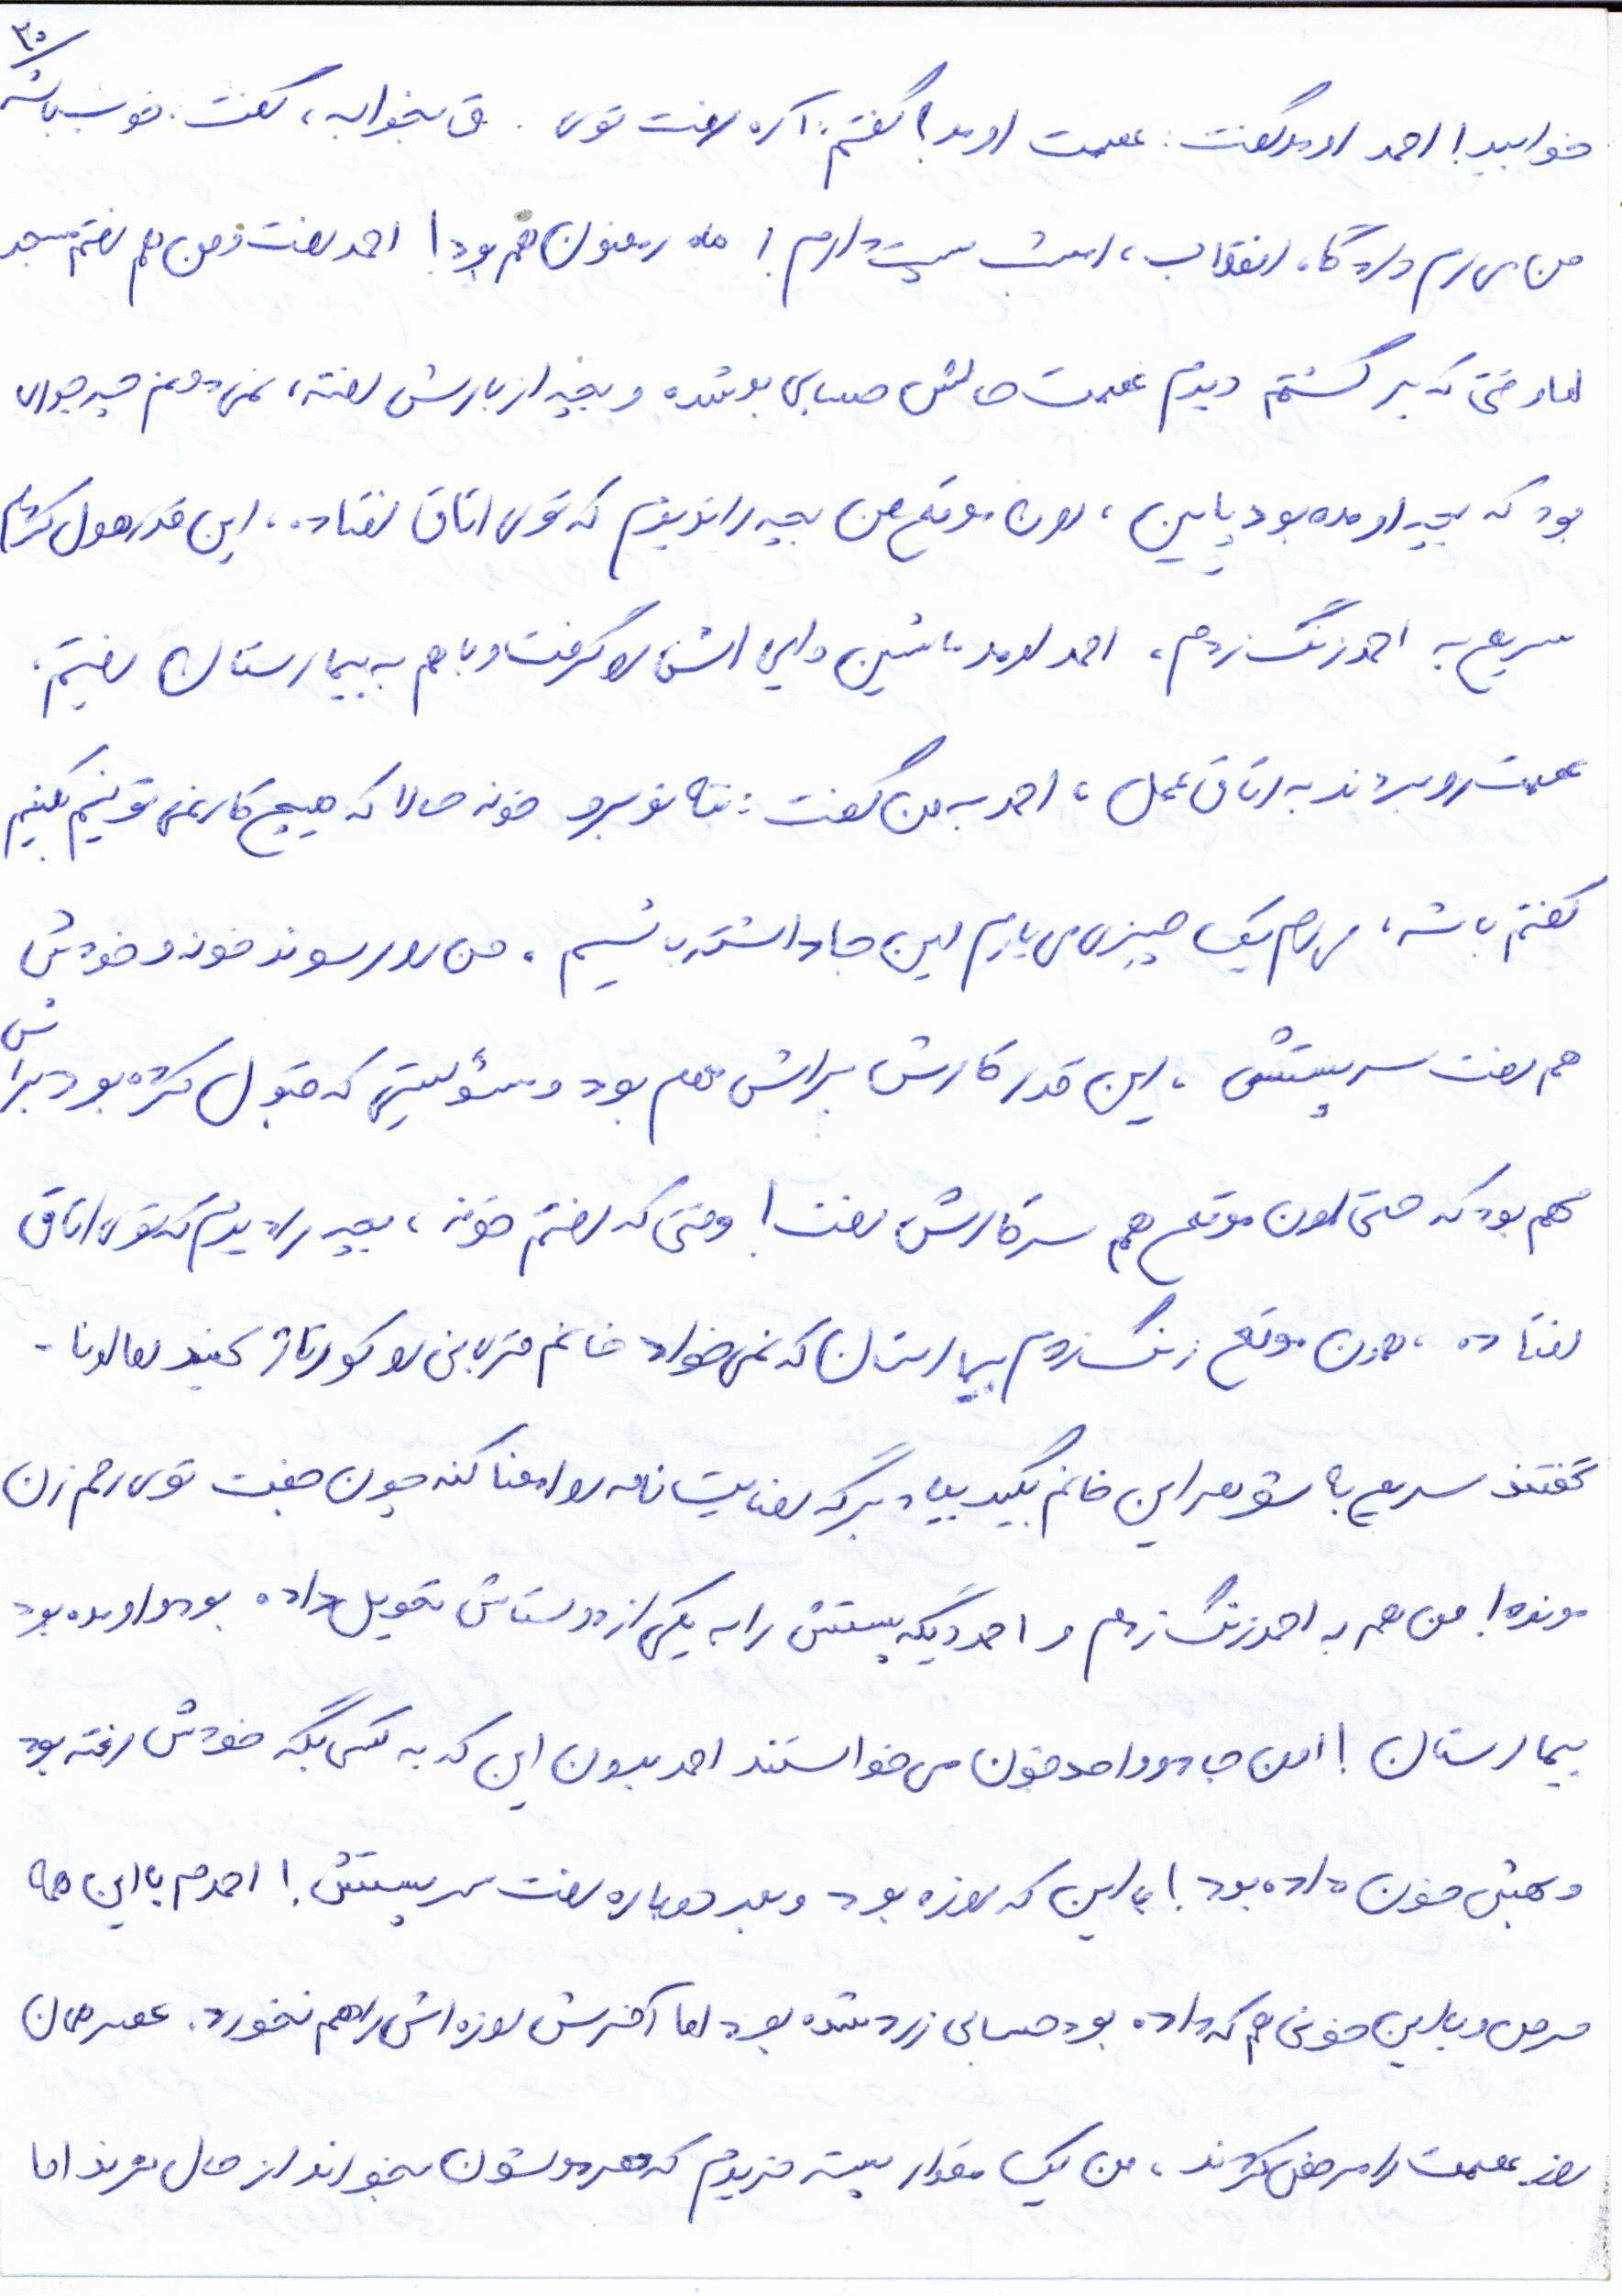 ۳۰
خوابید! احمد اومد گفت: عصمت اومد؟ گفتم: آره رفت توی بخوابه، گفت: خوب باشه
من می رم دادگاه انقلاب، امشب پست دارم! ماه رمضون هم بود! احمد رفت و من هم رفتم مسجد
اما وقتی که برگشتم دیدم عصمت حالش حسابی بد شده و بچه از بارش رفته، نمی دونم چه جوری
بود که بچه اومده بود پایین، اون موقع من بچه را ندیدم که توی اتاق افتاده، این قدر هول کردم
سریع به احمد زنگ زدم، احمد اومد ماشین داپی اش رو گرفت و با هم به بیمارستان رفتیم.
عصمت رو بردند به اتاق عمل، احمد به من گفت: ننه تو برو خونه حالا که هیچ کار نمی تونیم بکنیم
گفتم باشه، می رم یک چیزی می یارم این جا داشته باشیم. من رو رسوند خونه و خودش
هم رفت سر پستش، این قدر کارش براش مهم بود و مسؤلیتی که قبول کرده بود براش
مهم بود که حتی اون موقع هم سر کارش رفت! وقتی که رفتم خونه، بچه را دیدم که توی اتاق
افتاده، همون موقع زنگ زدم بیمارستان که نمی خواد خانم قربانی رو کورتاژ کنید اما اونا -
گفتند سریع با شوهر این خانم بگید بیاد برگه رضایت نامه رو امضا کنه چون جفت توی رحم زن
مونده! من هم به احمد زنگ زدم و احمد دیگه پستش را به یکی از دوستاش تحویل داده بود و اومده بود
بیمارستان! اون جا دو واحد خون می خواستند احمد بدون این که به کسی بگه خودش رفته بود
و بهش خون داده بود! با این که روزه بود و بعد دوباره رفت سر پستش! احمدم با این همه
مرض و با این خونی هم که داده بود حسابی زرد شده بود اما آخرش روزه اش را هم نخورد. عصر همان
روز عصمت را مرخص کردند، من یک مقدار پسته خریدم که هر دوشون بخورند از حال نرند اما